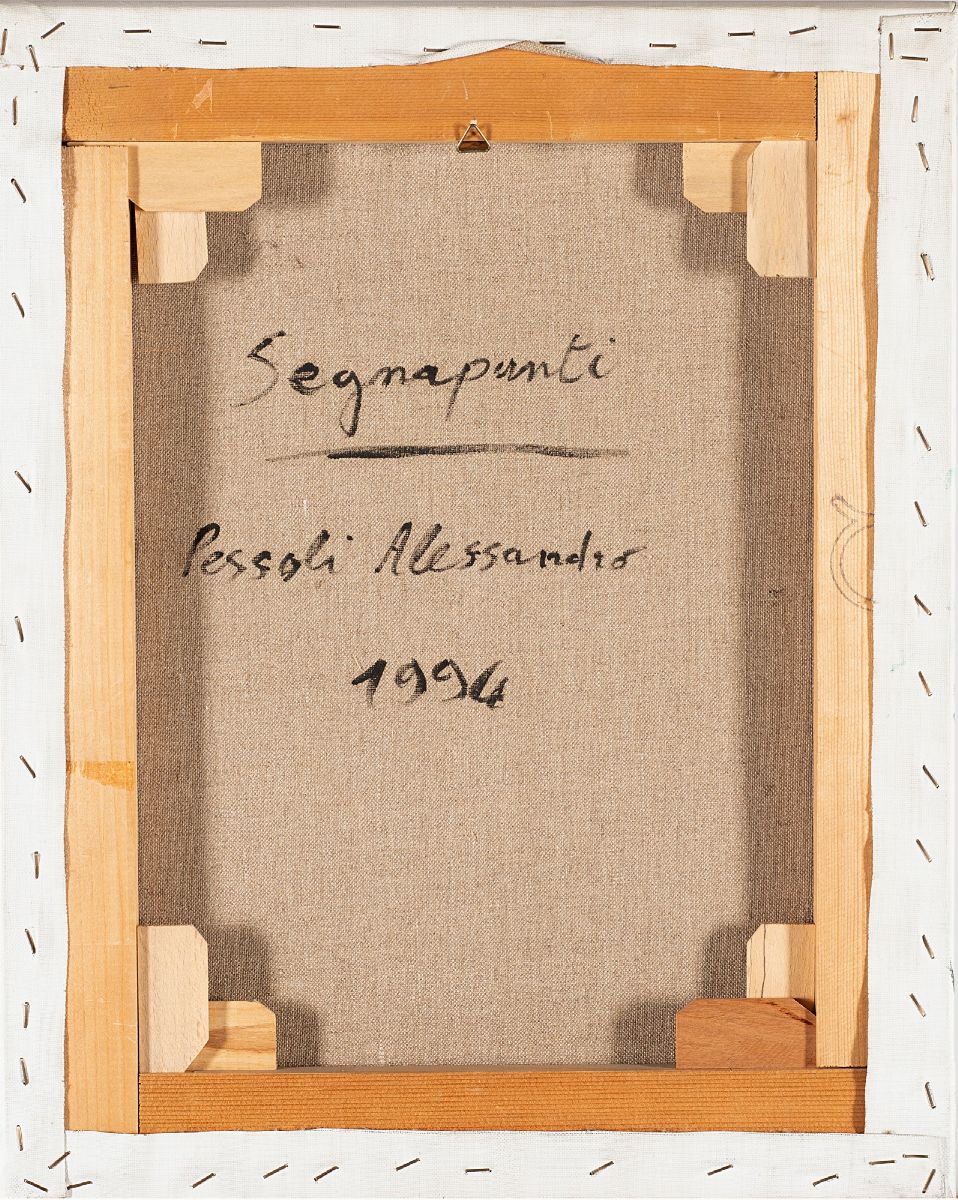 Segnapunti
Pessoli Alessandro
1994